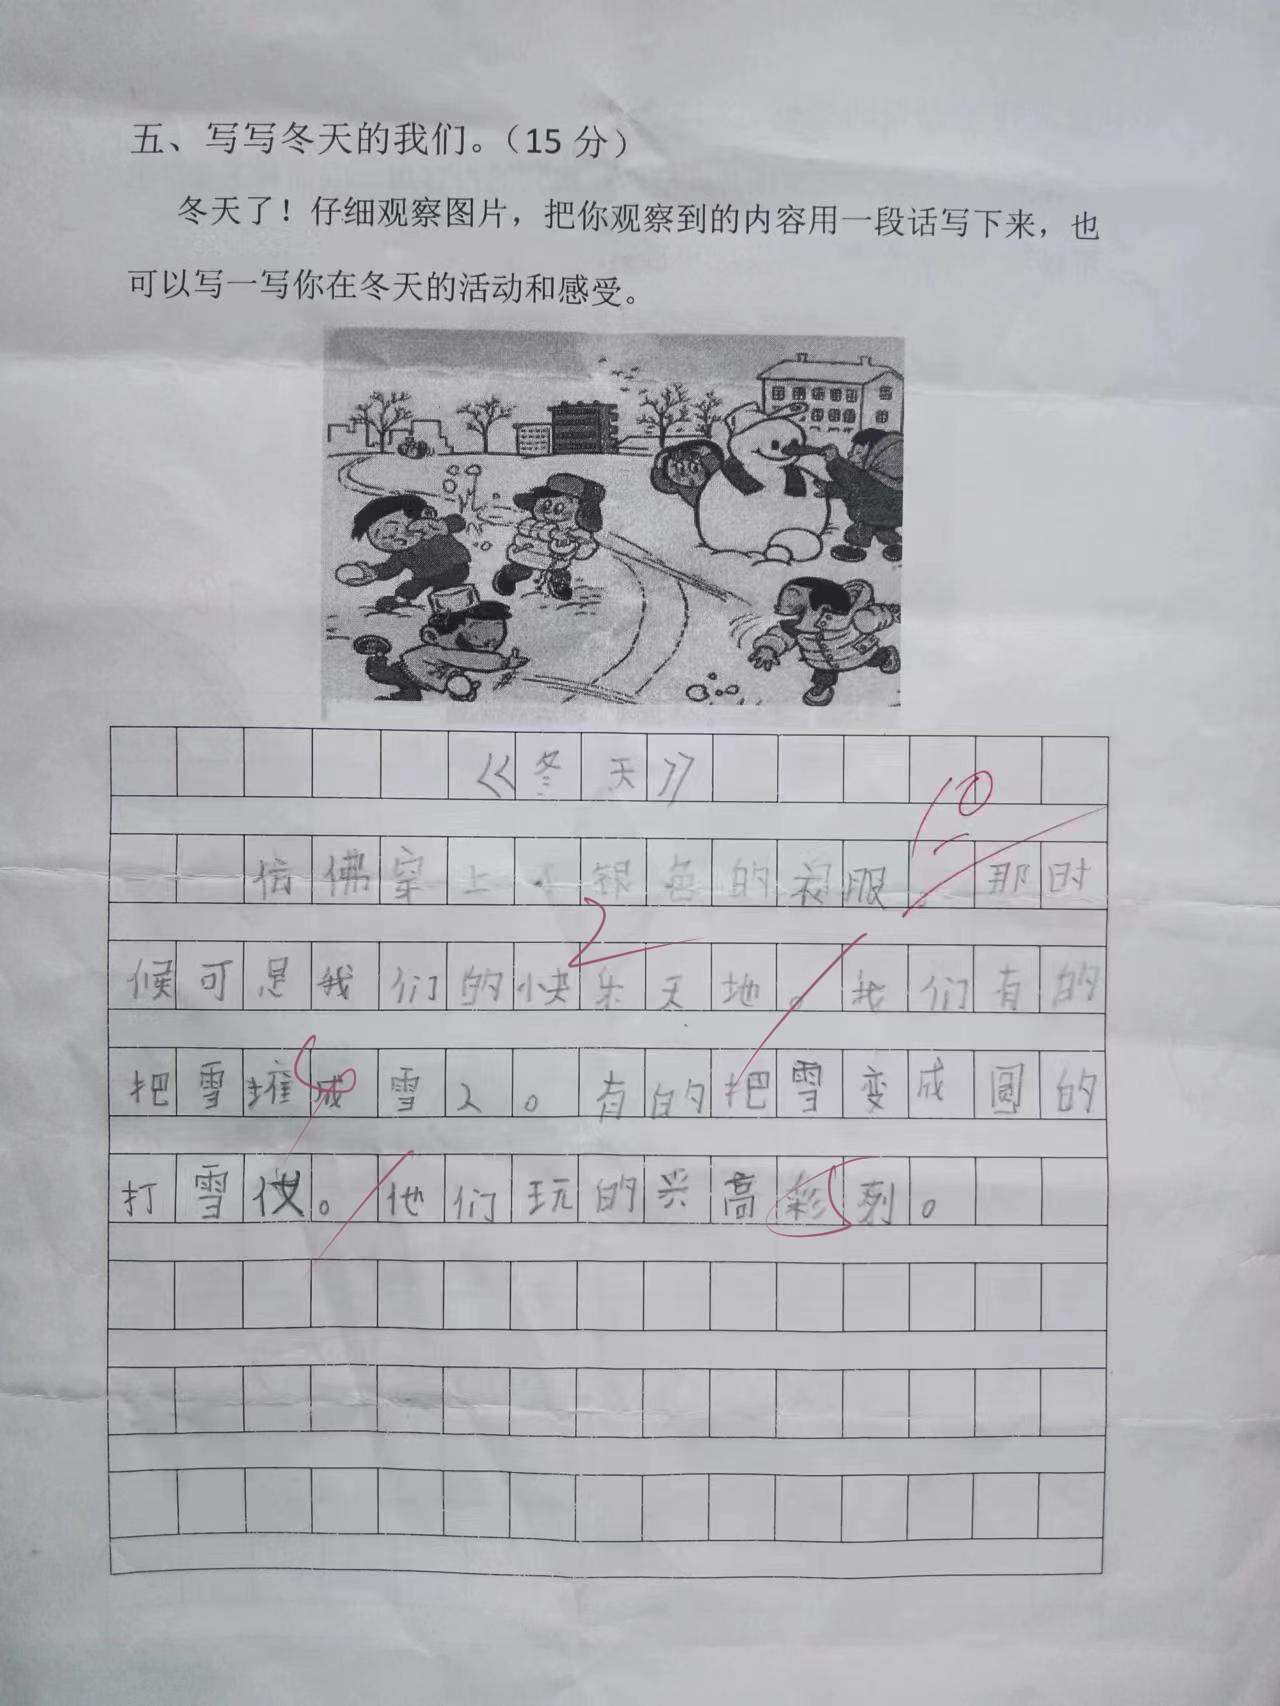 五、写写冬天的我们。（15 分）
冬天了！仔细观察图片，把你观察到的内容用一段话写下来，也
可以写一写你在冬天的活动和感受。
《冬天》
10
佛穿上小银色的衣服。那时
2
候可是我们的快乐天地。我们有的
把雪堆成雪人。有的把雪变成圆的
打雪仗。他们玩的兴高彩列。